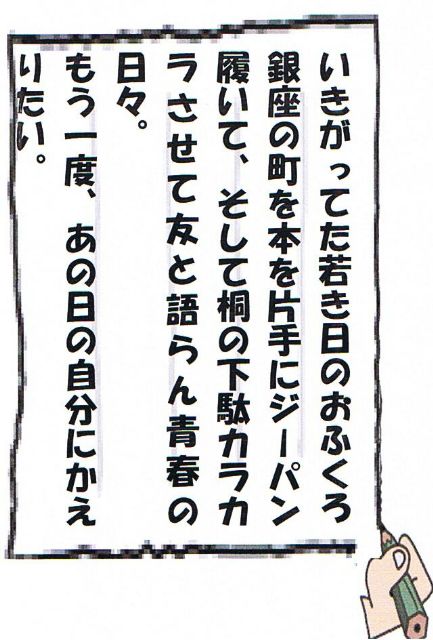 いきがってた若き日のおふくろ
銀座の町を本を片手にジーパン
履いて、そして桐の下駄カラカ
ラさせて友と語らん青春の
日々。
もう一度、あの日の自分にかえ
りたい。